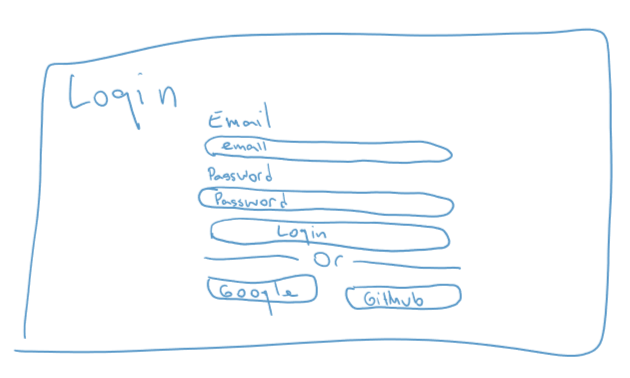 Login
Email
email
Password
Password
Login
Or
Google
GitHub